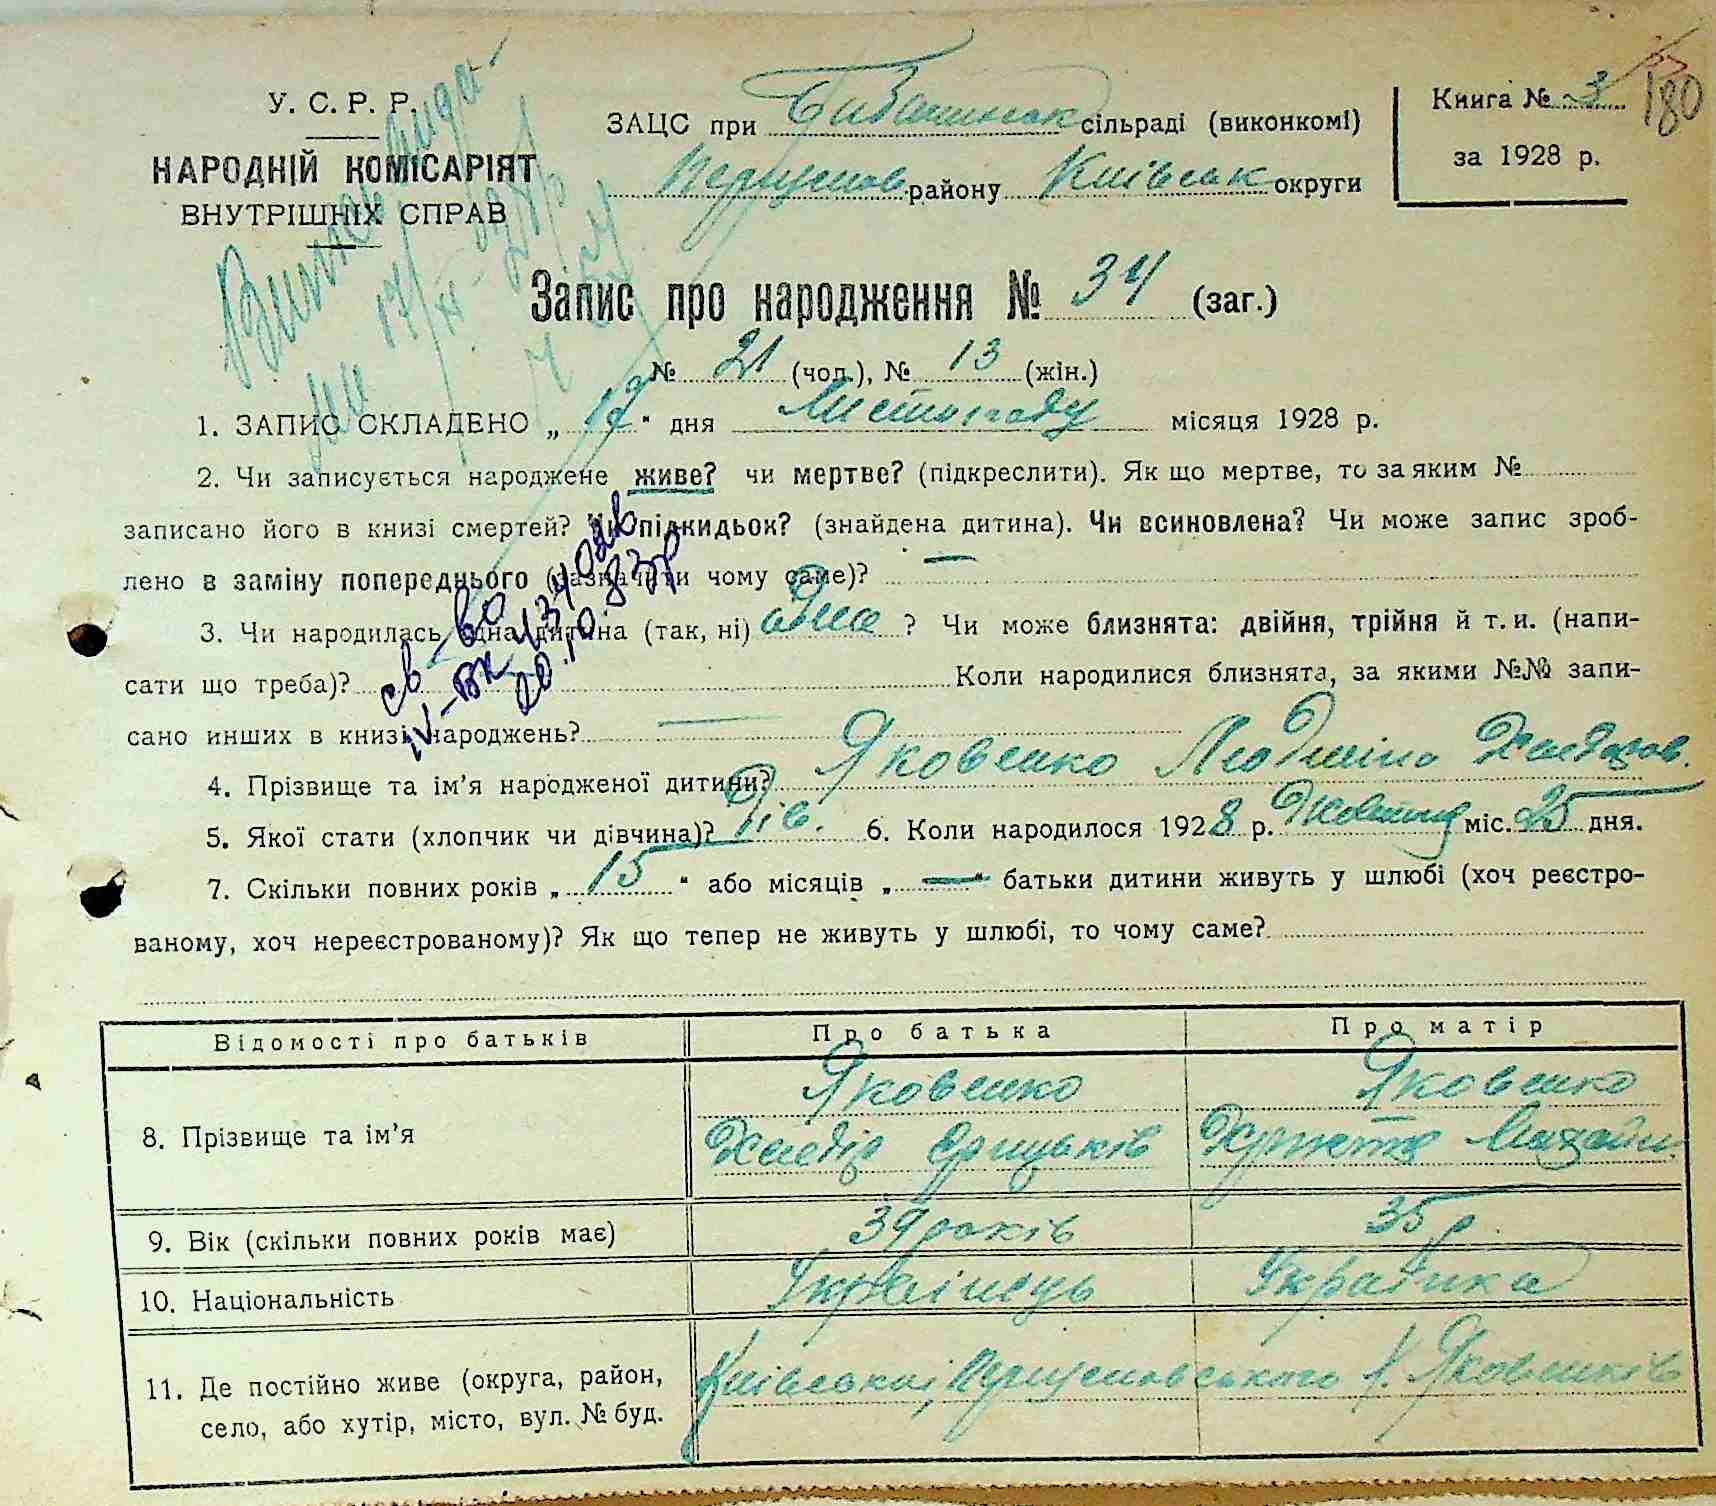 У. С. Р. Р.
НАРОДНІЙ КОМІСАРІЯТ
ВНУТРІШНІХ СПРАВ
ЗАЦС при сільраді (виконкомі)
району Київськ округи
Книга № 3
за 1928 р.
180
Запис про народження № 34 (заг.)
№ 21 (чол.), № 13 (жін.)
1. ЗАПИС СКЛАДЕНО „ 17 “ дня Листопаду місяця 1928 р.
2. Чи записується народжене живе? чи мертве? (підкреслити). Як що мертве, то за яким №
записано його в книзі смертей? Чи підкидьок? (знайдена дитина). Чи всиновлена? Чи може запис зроб-
лено в заміну попереднього (зазначити чому саме)? —
3. Чи народилась одна дитина (так, ні) одна ? Чи може близнята: двійня, трійня й т. и. (напи-
сати що треба)? Коли народилися близнята, за якими №№ запи-
сано инших в книзі народжень? —
4. Прізвище та ім’я народженої дитини? Яковенко Людмила
5. Якої стати (хлопчик чи дівчина)? Дів. 6. Коли народилося 1928 р. Жовтня міс. 25 дня.
7. Скільки повних років „ 15 “ або місяців „ — “ батьки дитини живуть у шлюбі (хоч реєстро-
ваному, хоч нереєстрованому)? Як що тепер не живуть у шлюбі, то чому саме?
Відомості про батьків Про батька Про матір
Яковенко Яковенко
8. Прізвище та ім’я
9. Вік (скільки повних років має) 39 років 35 р.
10. Національність Українець Українка
11. Де постійно живе (округа, район,
село, або хутір, місто, вул. № буд.
Київської, х. Яковенків